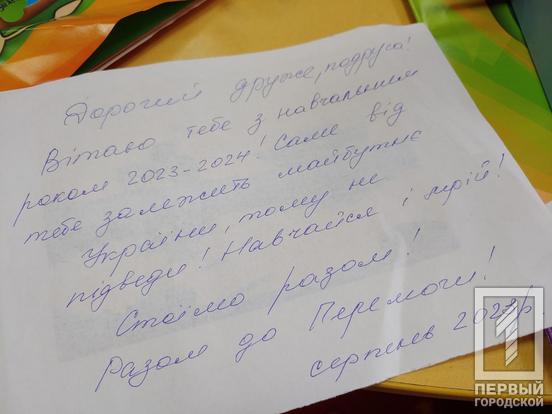 Дорогий друже, подруго!
Вітаю тебе з навчальним
роком 2023-2024! Саме від
тебе залежить майбутнє
України, тому не
підведи! Навчайся і мрій!
Стоїмо разом!
Разом до Перемоги!
серпень 2023р.
ПЕРВЫЙ
ГОРОДСКОЙ